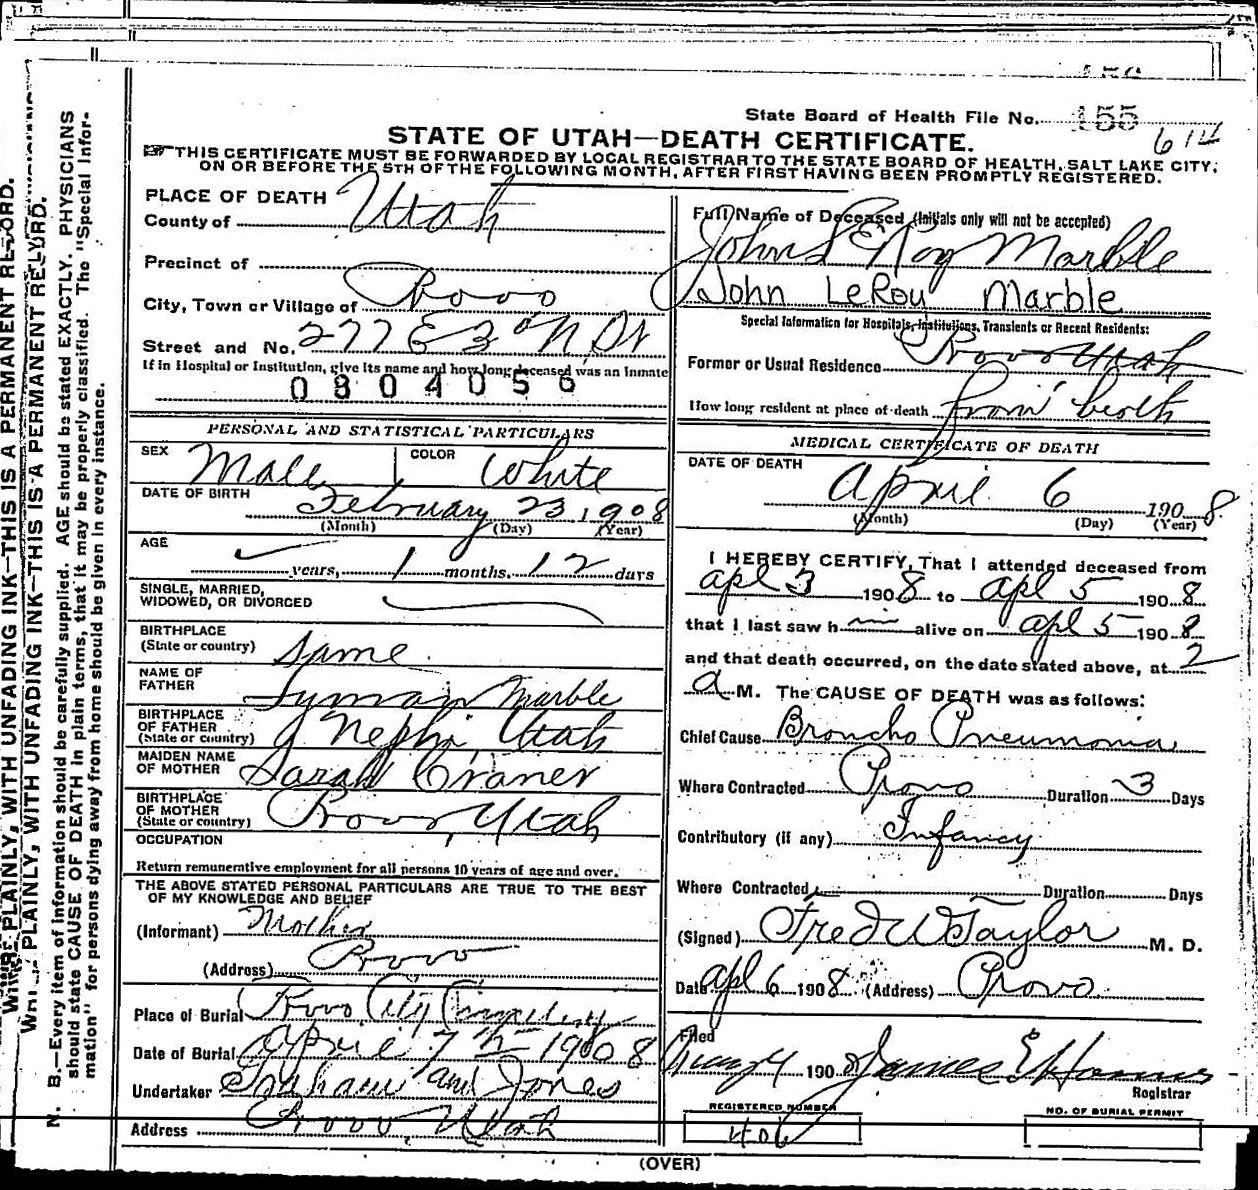 State Board of Health File No. 155
614
STATE OF UTAH—DEATH CERTIFICATE.
THIS CERTIFICATE MUST BE FORWARDED BY LOCAL REGISTRAR TO THE STATE BOARD OF HEALTH, SALT LAKE CITY,
ON OR BEFORE THE 5TH OF THE FOLLOWING MONTH, AFTER FIRST HAVING BEEN PROMPTLY REGISTERED.
PLACE OF DEATH
County of Utah
Precinct of
City, Town or Village of Provo
Street and No. 277 E 3d N St
If in Hospital or Institution, give its name and how long deceased was an Inmate
0804056
PERSONAL AND STATISTICAL PARTICULARS
SEX Male COLOR White
DATE OF BIRTH February 23, 1908
(Month) (Day) (Year)
AGE years, 1 months, 12 days
SINGLE, MARRIED,
WIDOWED, OR DIVORCED
BIRTHPLACE
(State or country) Same
NAME OF
FATHER Lyman Marble
BIRTHPLACE
OF FATHER
(State or country) Nephi, Utah
MAIDEN NAME
OF MOTHER Sarah Craner
BIRTHPLACE
OF MOTHER
(State or country) Provo, Utah
OCCUPATION
Return remunerative employment for all persons 10 years of age and over.
THE ABOVE STATED PERSONAL PARTICULARS ARE TRUE TO THE BEST
OF MY KNOWLEDGE AND BELIEF
(Informant) Mother
(Address) Provo
Place of Burial Provo City
Date of Burial April 7th 1908
Undertaker Graham and Jones
Address Provo Utah
Full Name of Deceased (Initials only will not be accepted)
John LeRoy Marble
John LeRoy Marble
Special Information for Hospitals, Institutions, Transients or Recent Residents:
Former or Usual Residence Provo Utah
How long resident at place of death from birth
MEDICAL CERTIFICATE OF DEATH
DATE OF DEATH
April 6 1908
(Month) (Day) (Year)
I HEREBY CERTIFY, That I attended deceased from
apl 3 1908 to apl 5 1908
that I last saw h im alive on apl 5 1908
and that death occurred, on the date stated above, at 2
a M. The CAUSE OF DEATH was as follows:
Chief Cause Broncho Pneumonia
Where Contracted Provo Duration 3 Days
Contributory (if any) Infancy
Where Contracted Duration Days
(Signed) Fred W Taylor M. D.
Date apl 6 1908 (Address) Provo
Filed
May 4 1908 James E
Registrar
REGISTERED NUMBER
406
NO. OF BURIAL PERMIT
(OVER)
WRITE PLAINLY, WITH UNFADING INK—THIS IS A PERMANENT RECORD.
N. B.—Every item of information should be carefully supplied. AGE should be stated EXACTLY. PHYSICIANS
should state CAUSE OF DEATH in plain terms, that it may be properly classified. The "Special Infor-
mation" for persons dying away from home should be given in every instance.